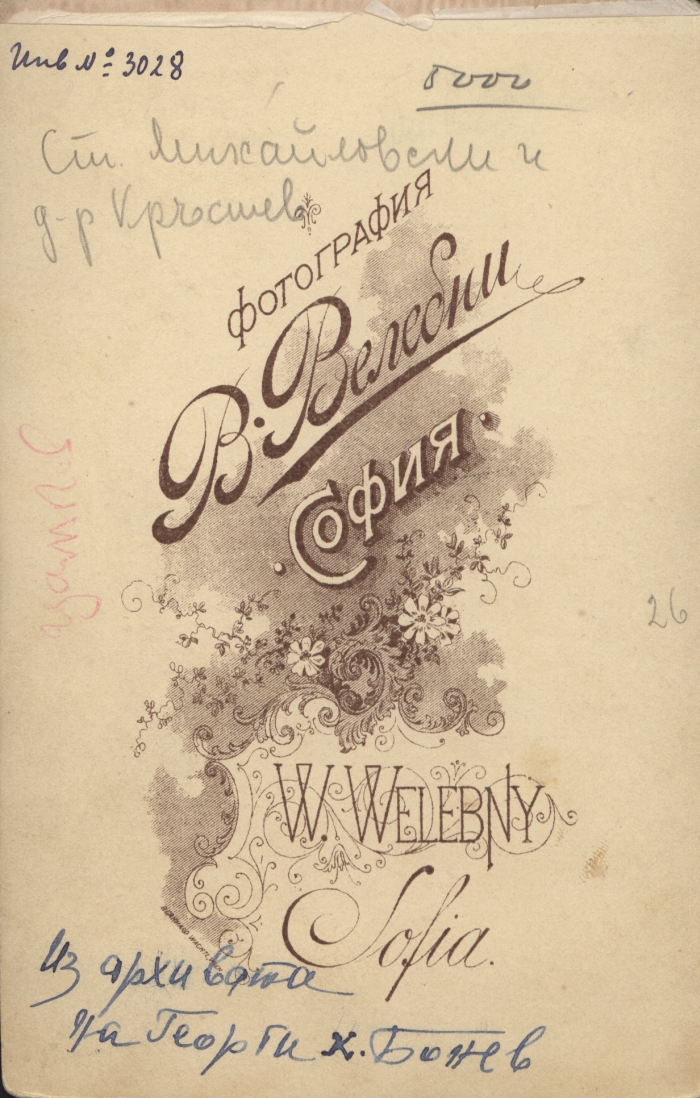 Инв № 3028
Ст. Михайловски и
д-р Кръстев
ФОТОГРАФИЯ
В. Велебни
СОФИЯ
26
W. WELEBNY
Sofia.
Из архивата
на Георги х. Бонев